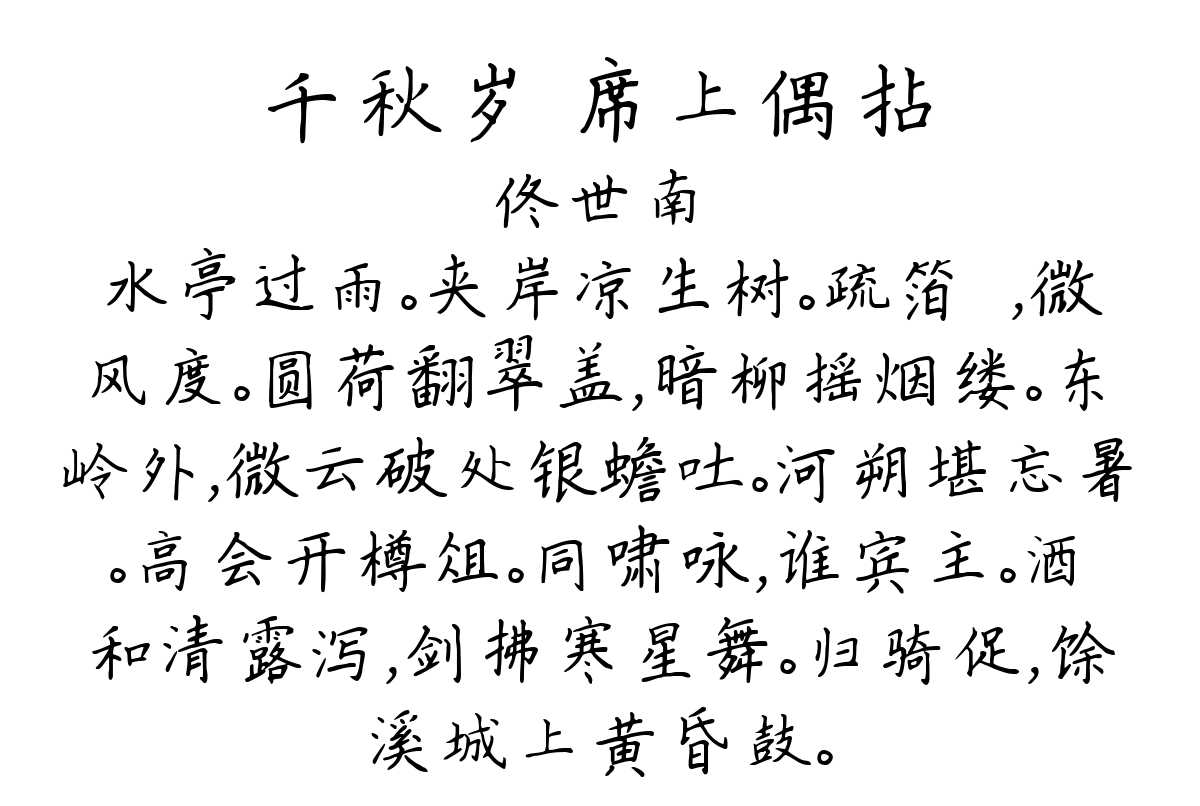 千秋岁 席上偶拈
佟世南
水亭过雨。夹岸凉生树。疏箔 ,微
风度。圆荷翻翠盖,暗柳摇烟缕。东
岭外,微云破处银蟾吐。河朔堪忘暑
。高会开樽俎。同啸咏,谁宾主。酒
和清露泻,剑拂寒星舞。归骑促,馀
溪城上黄昏鼓。